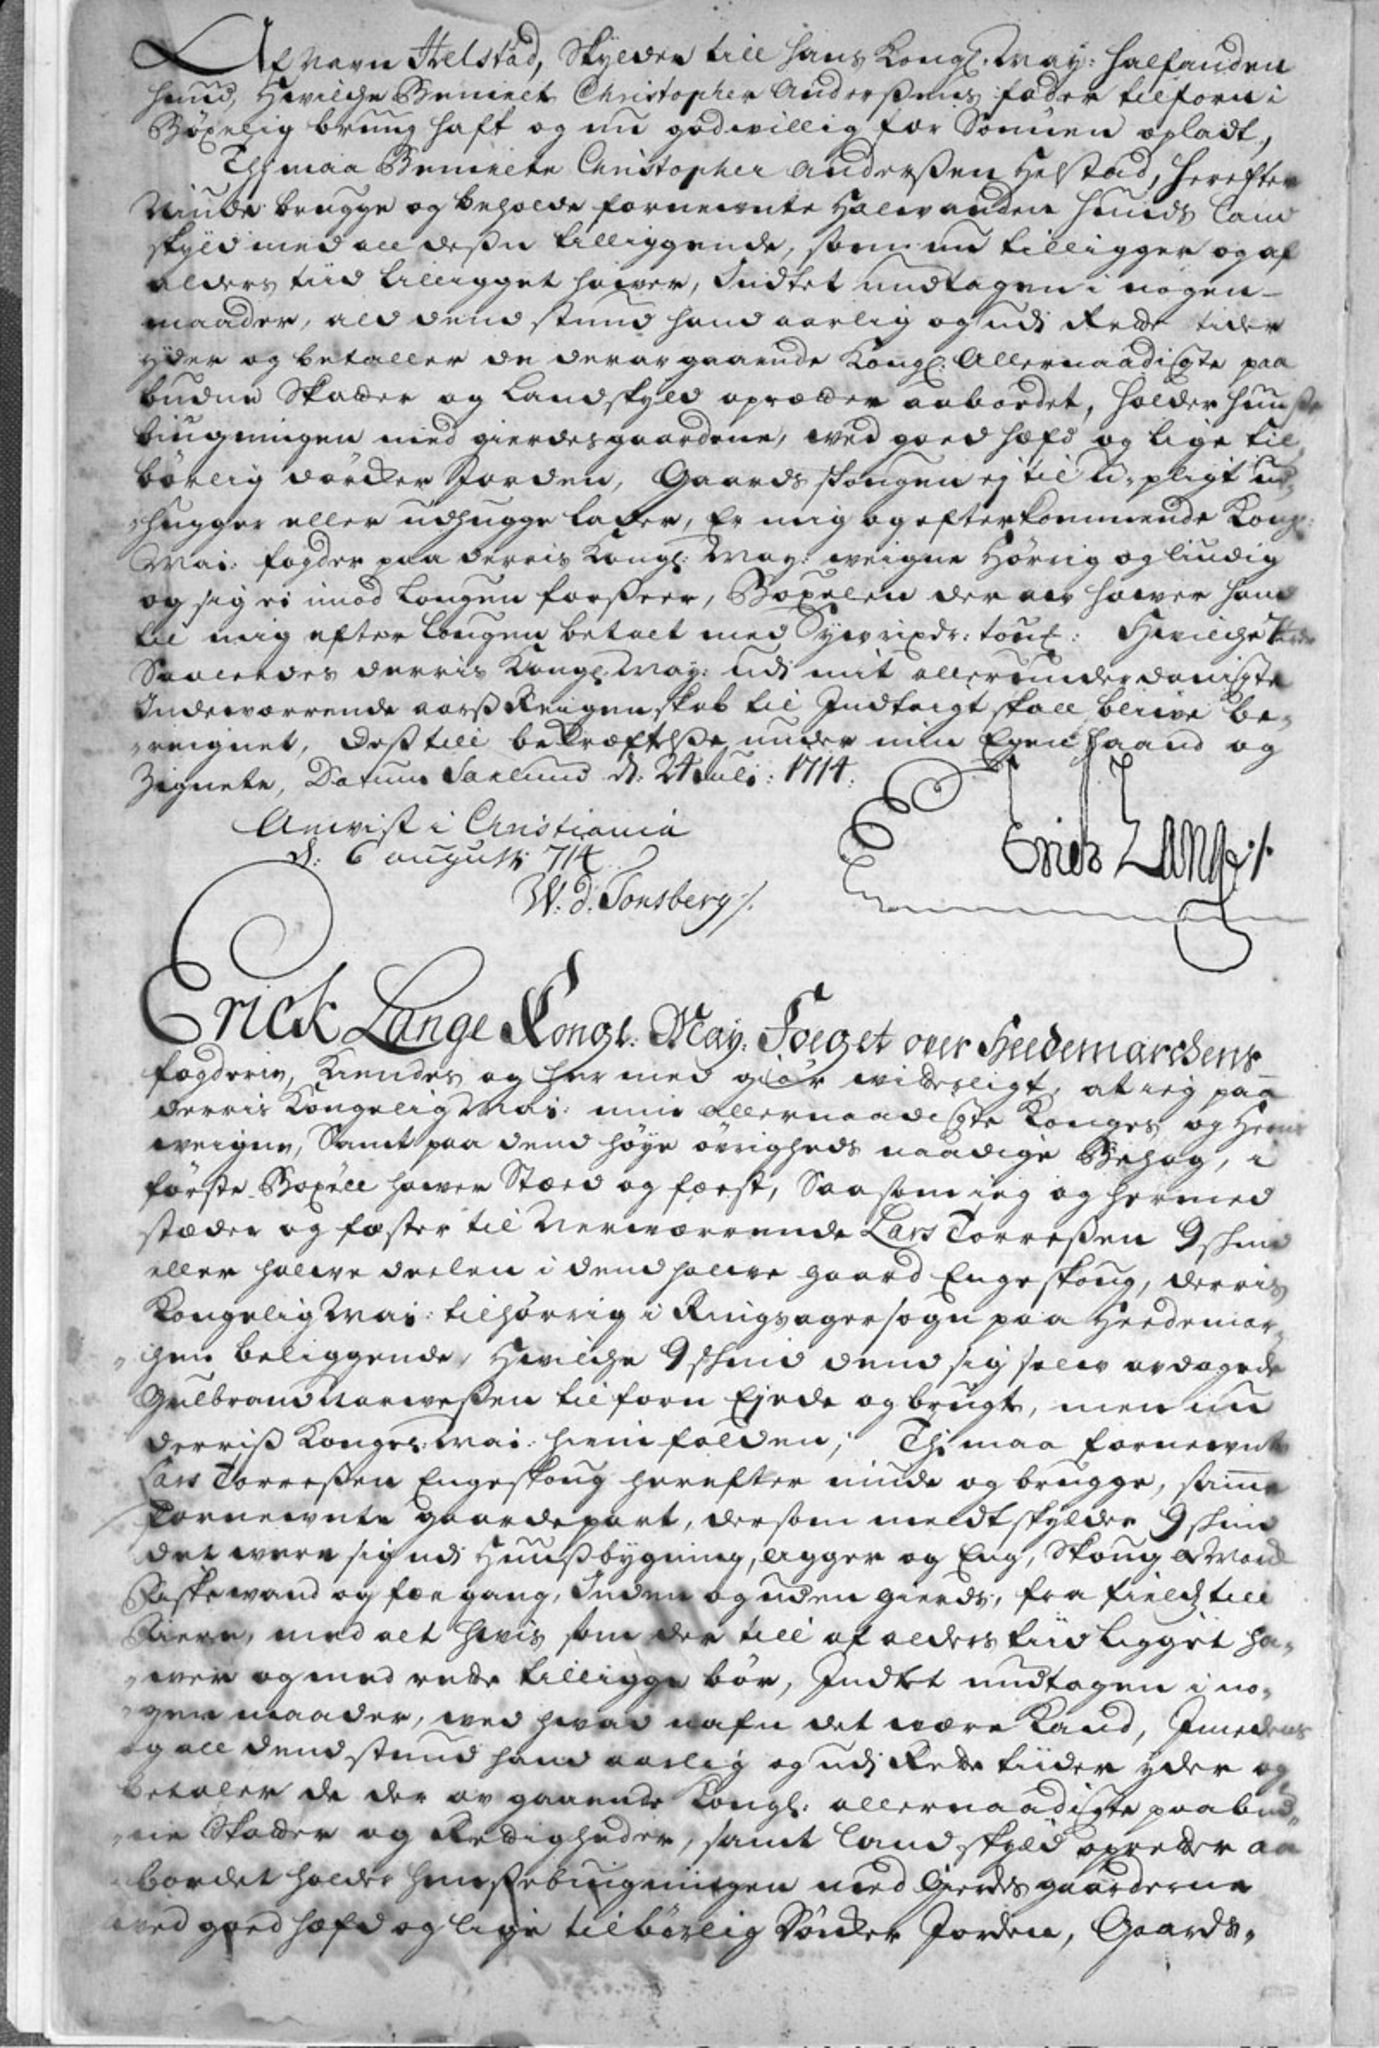 Af Navn Helstad, Skylder till hans Kongl. May: halfanden
huud, Hvilche Bemelte Christopher Anderßens fader tilforn i
Böxelig brug haft og nu godvillig for Sönnen opladt,
Thj maa Bemelte Christopher Anderßen Helstad, herefter
Niude brugge og beholde fornevnte Halvanden huuds land
skyld med all deßen tilliggende, som nu tilligger og af
alders tiid tilligget haver, Indtet undtagen i nogen
maader, ald dend stund hand aarlig og udi Rette tider
yder og betaller de deraf gaaende Kongl: Allernaadigste paa
budne Skatter og Landskyld opretter aabordet, holder huuße
biugningen med gierdesgaardene, ved goed hæfd og lige til
börlig dörcker Jorden, Gaards skougen ej til U-pligt ud-
-hugger eller udhugge lader, Er mig og efterkommende Kongl:
Mai: fogder paa derris Kongl: May: veigne Hörrig og liudig
og sig ei imod Lougen forßeer, Böxelen der av haver hand
til mig efter Lougen betalt med Syv rixdr: Hvilche
Saaledes derris Kongl. May: udi mit allerunderdanigste
Indeværrende aarß Reigenskab til Indteigt skall blive be-
-reignet, Deß till bekræftelße under min Egen haand og
Zignete, Datum Saxlund d: 24 Juli: 1714.
Anvist i Christiania
d: 6 augusti 714
W. d. Tonsberg /.
Erich Lange /.
Erick Lange Kongl. May. Foeget over Heedemarckens
fogderie, Kiendes og her med giör vitterligt, at ieg paa
derris Kongelig Mai: min allernaadigste Konges og Herris
veigne, Samt paa dend höye övrigheds naadige Behag, i
förste Böxell haver Stæd og fæst, Saa som ieg og hermed
stæder og fæster til Nerværrende Lars Torreßen 9 skind
eller halve deelen i dend halve gaard Engeskoug, derris
Kongelig Mai: tilhörrig i Ringsager sogn paa Heedemar-
-chen beliggende, Hvilche 9 skind dend sig selv avdagede
Gulbrand Narveßen tilforn Ejede og brugt, men nu
derriß Konges: Mai: hiemfalden; Thi maa fornevnte
Lars Torreßen Engeskoug herefter niude og brugge, samme
fornevnte gaardepart, der som meldt skylder 9 skind
det vere sig udi Huußbygning, agger og Eng, Skoug Mark
Fiskevand og fægang, Inden og uden gierds, fra field till
Fiere, med alt hvis som der till af alders tiid ligget ha-
-ver og med rette tilligge bör, Indtet undtagen i no-
-gen maader, ved hvad nafn det være Kand, Imedens
og all dend stund hand aarlig og udi Rette tiider yder og
betaler de der av gaaende Kongl: allernaadigste paabud-
-ne Skatter og Rettigheder, samt landskyld opretter aa
bordet holder huußebiugningen med Gierdes gaarderne
ved goed hæfd og lige tilbörlig Dörcker Jorden, Gaards-